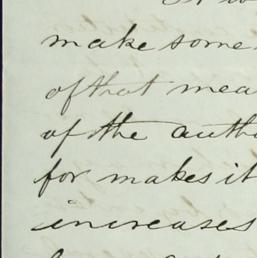 make some
of that mea
of the autho
for makes it
increases